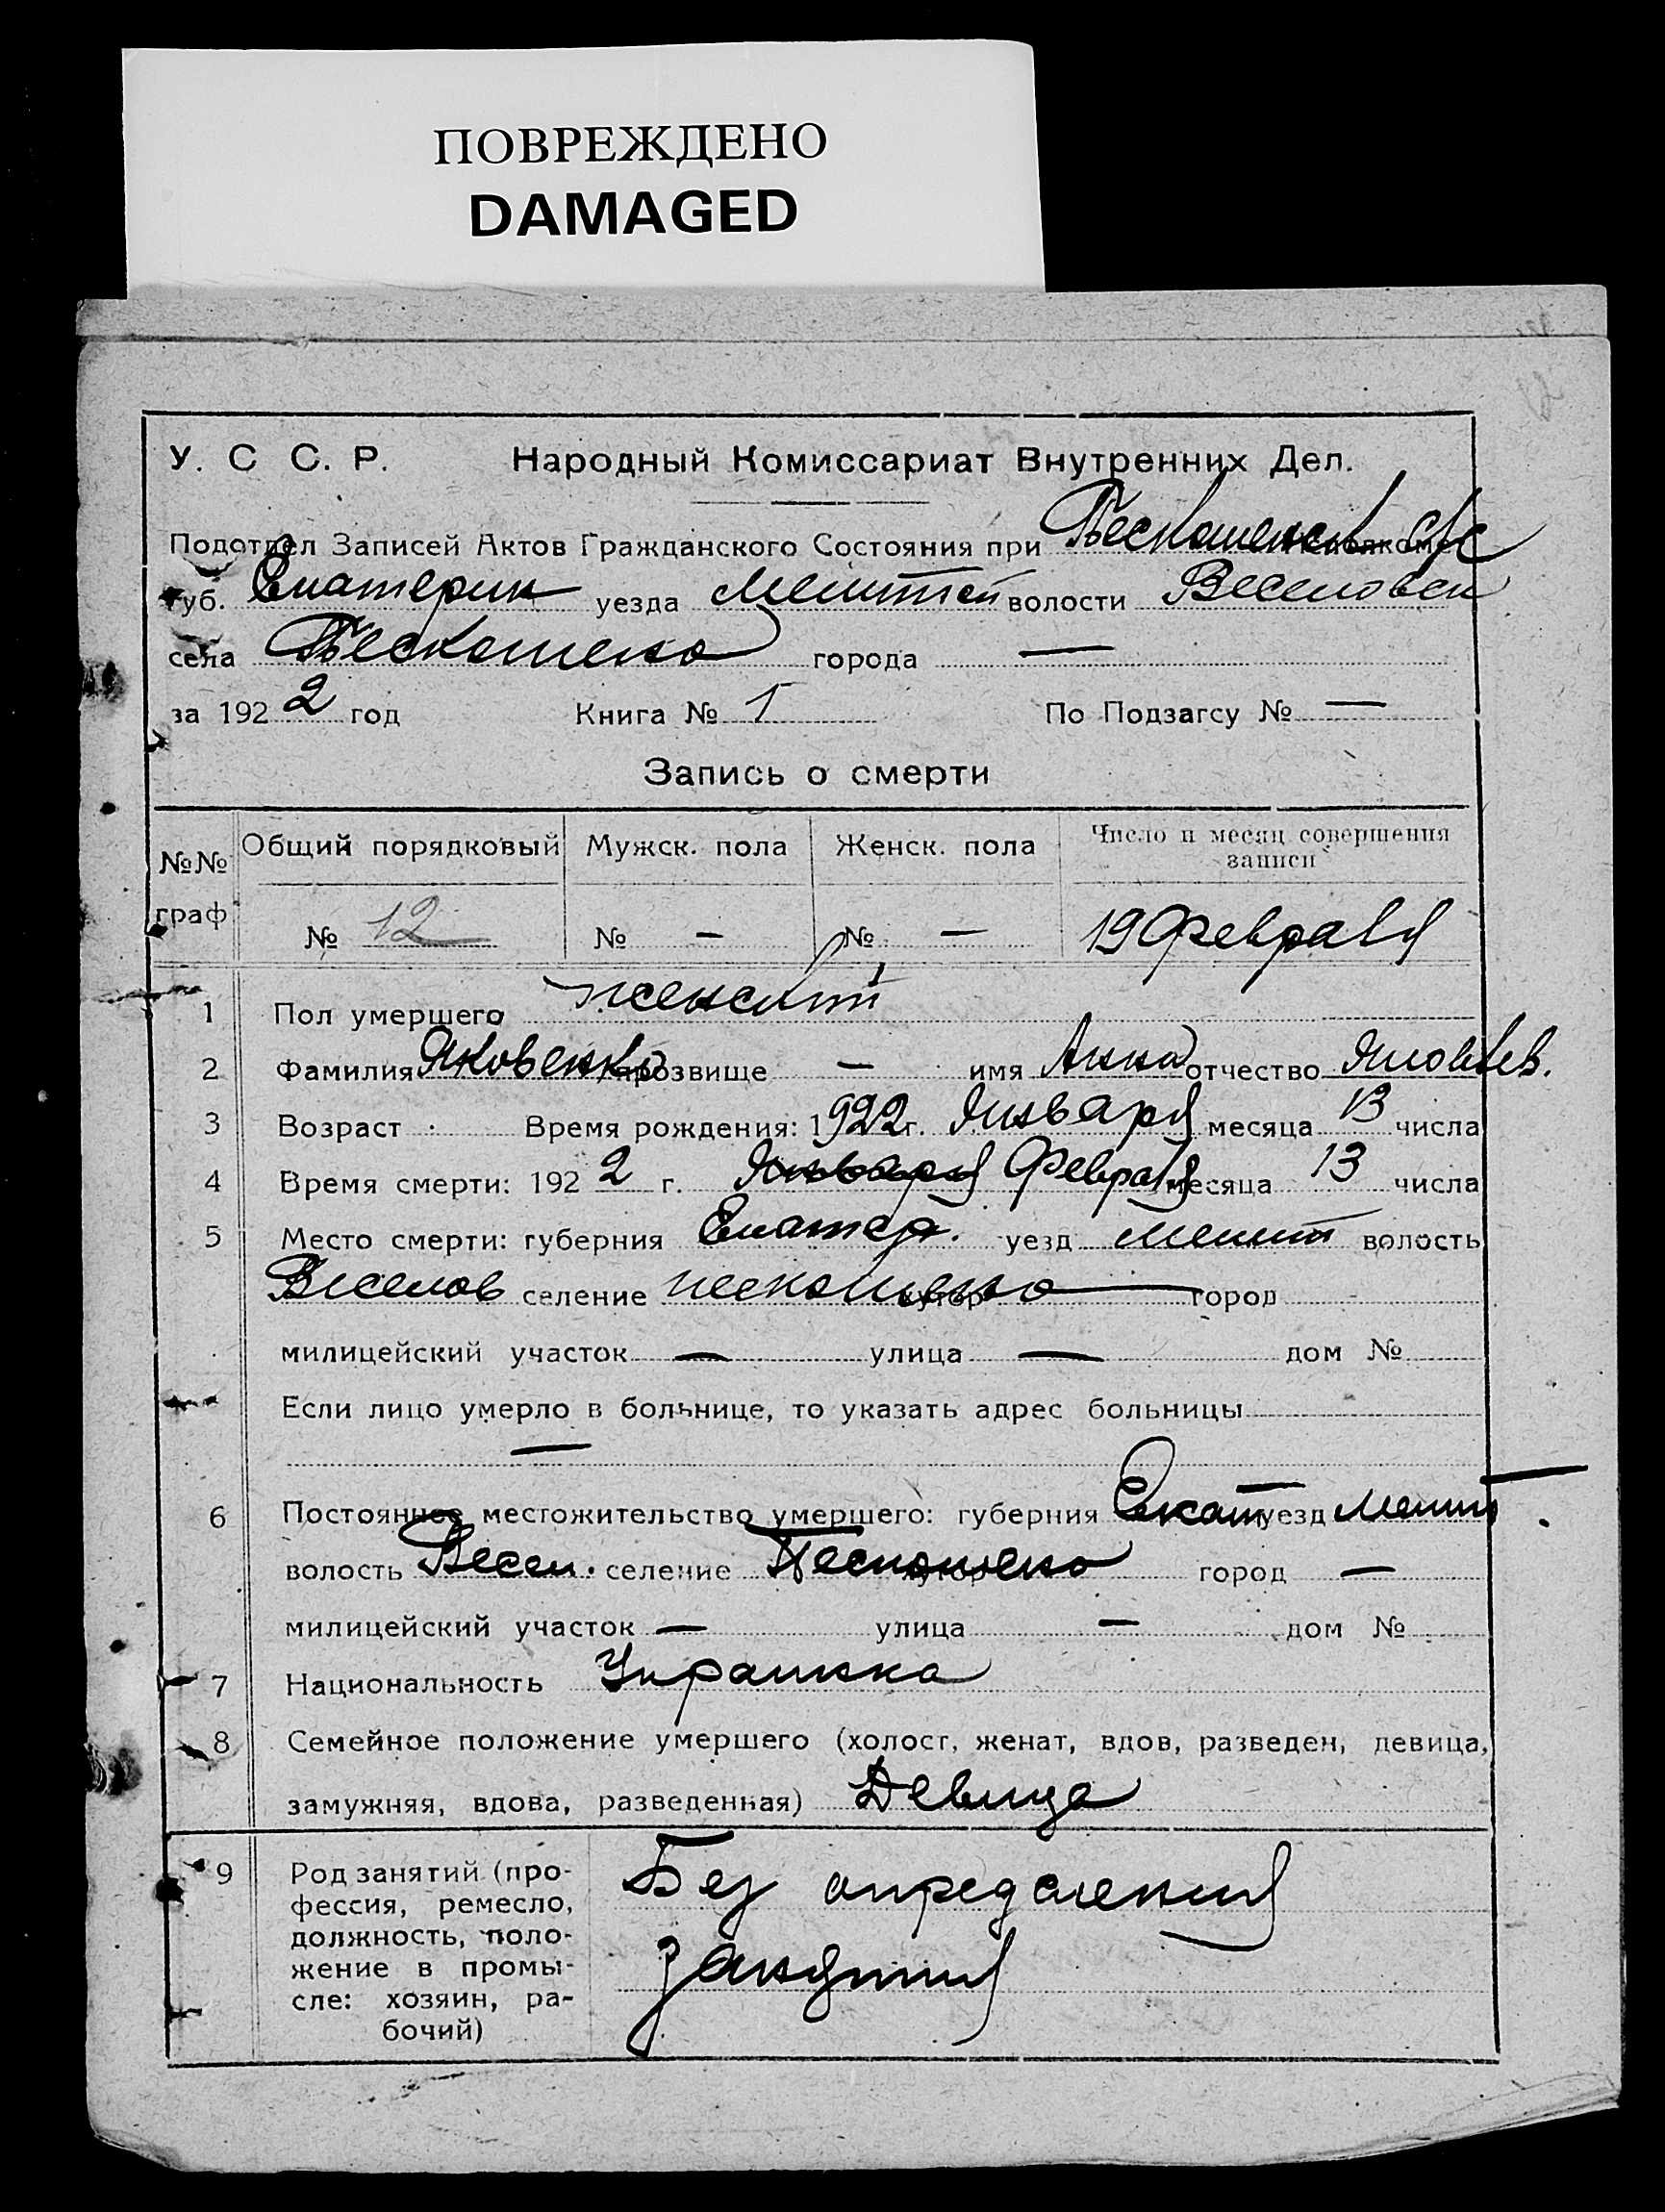 ПОВРЕЖДЕНО
DAMAGED
У. С С. Р. Народный Комиссариат Внутренних Дел.
Подотдел Записей Актов Гражданского Состояния при с/с
губ. Екатерин уезда волости Веселовск
села Пескошено города —
за 1922 год Книга № 1 По Подзагсу № —
Запись о смерти
№№ граф Общий порядковый Мужск. пола Женск. пола Число и месяц совершения записи
№ 12 № — № — 19 февраля
1 Пол умершего женский
2 Фамилия Яковенко прозвище — имя Анна отчество Яковлев.
3 Возраст Время рождения: 1922 г. Января месяца 13 числа
4 Время смерти: 1922 г. Января Февраля месяца 13 числа
5 Место смерти: губерния Екатер. уезд Мелит волость
Веселов селение Пескошено хутор — город
милицейский участок — улица — дом №
Если лицо умерло в больнице, то указать адрес больницы
—
6 Постоянное местожительство умершего: губерния Екат уезд Мелит.
волость Весел. селение Пескошено хутор город —
милицейский участок — улица — дом №
7 Национальность Украинка
8 Семейное положение умершего (холост, женат, вдов, разведен, девица,
замужняя, вдова, разведенная) Девица
9 Род занятий (про-
фессия, ремесло,
должность, поло-
жение в промы-
сле: хозяин, ра-
бочий)
Без определения
занятий